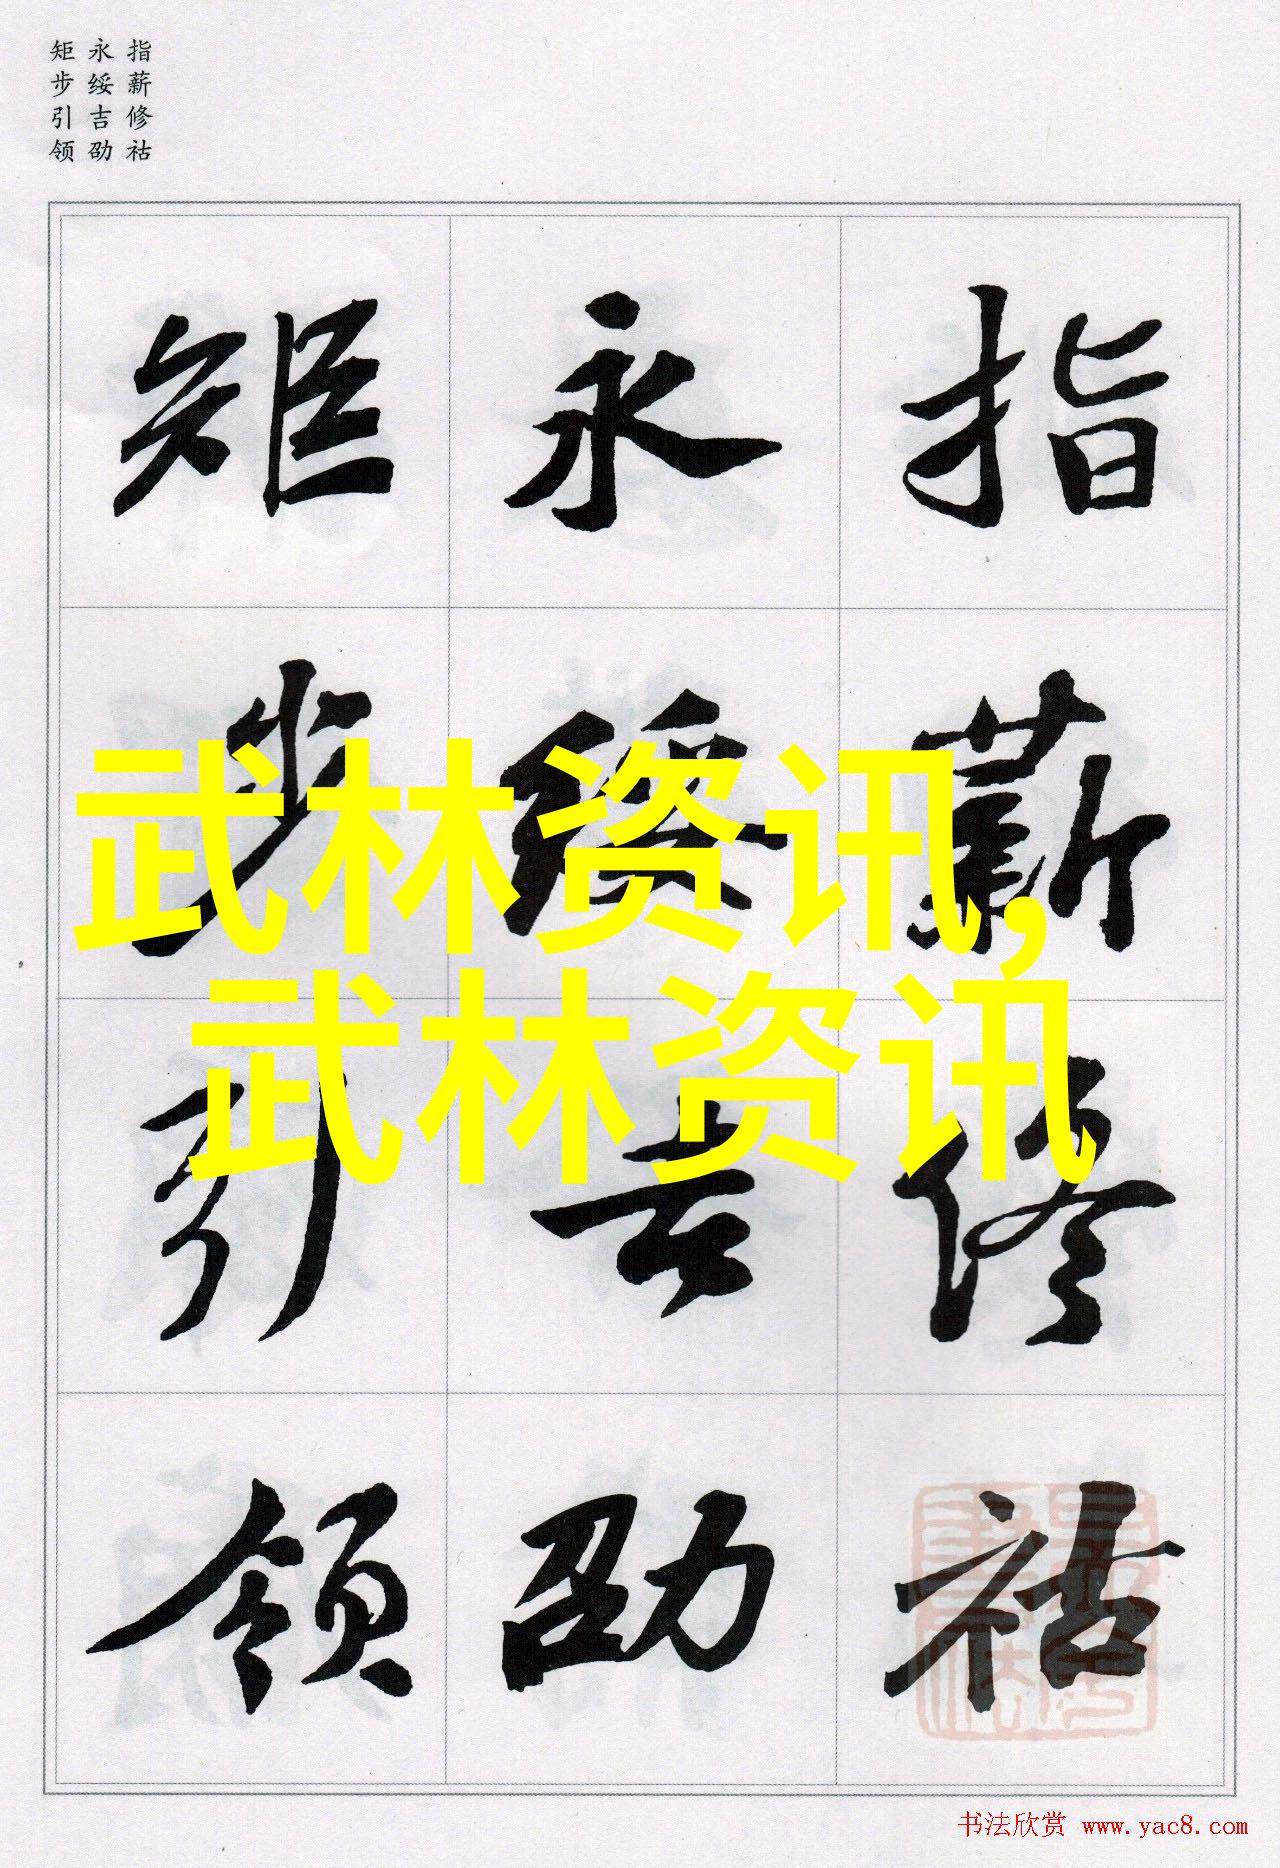 指薪修祜
永绥吉劭
矩步引领
指薪修祜
永绥吉劭
矩步引领
武林资讯,
武林资讯
书法欣赏 www.yac8.com